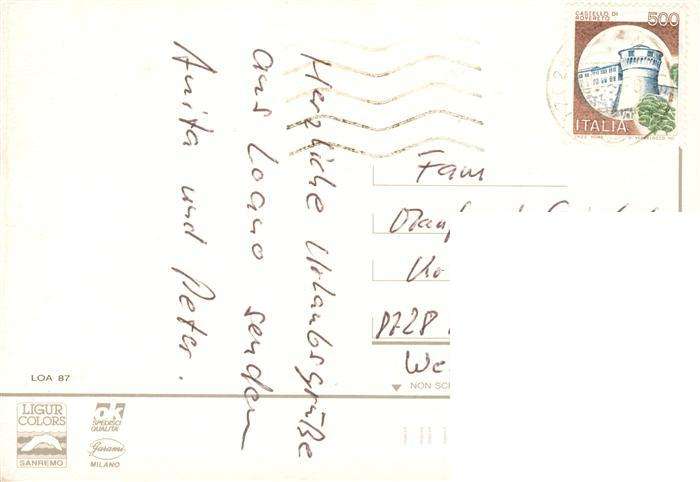 Herzliche Urlaubsgrüße
aus Loano senden
Anita und Peter.
CASTELLO DI
ROVERETO
500
ITALIA
Fam
LOA 87
NON
LIGUR
COLORS
SANREMO
ok
SPEDISCI
QUALITÀ
Garami
MILANO